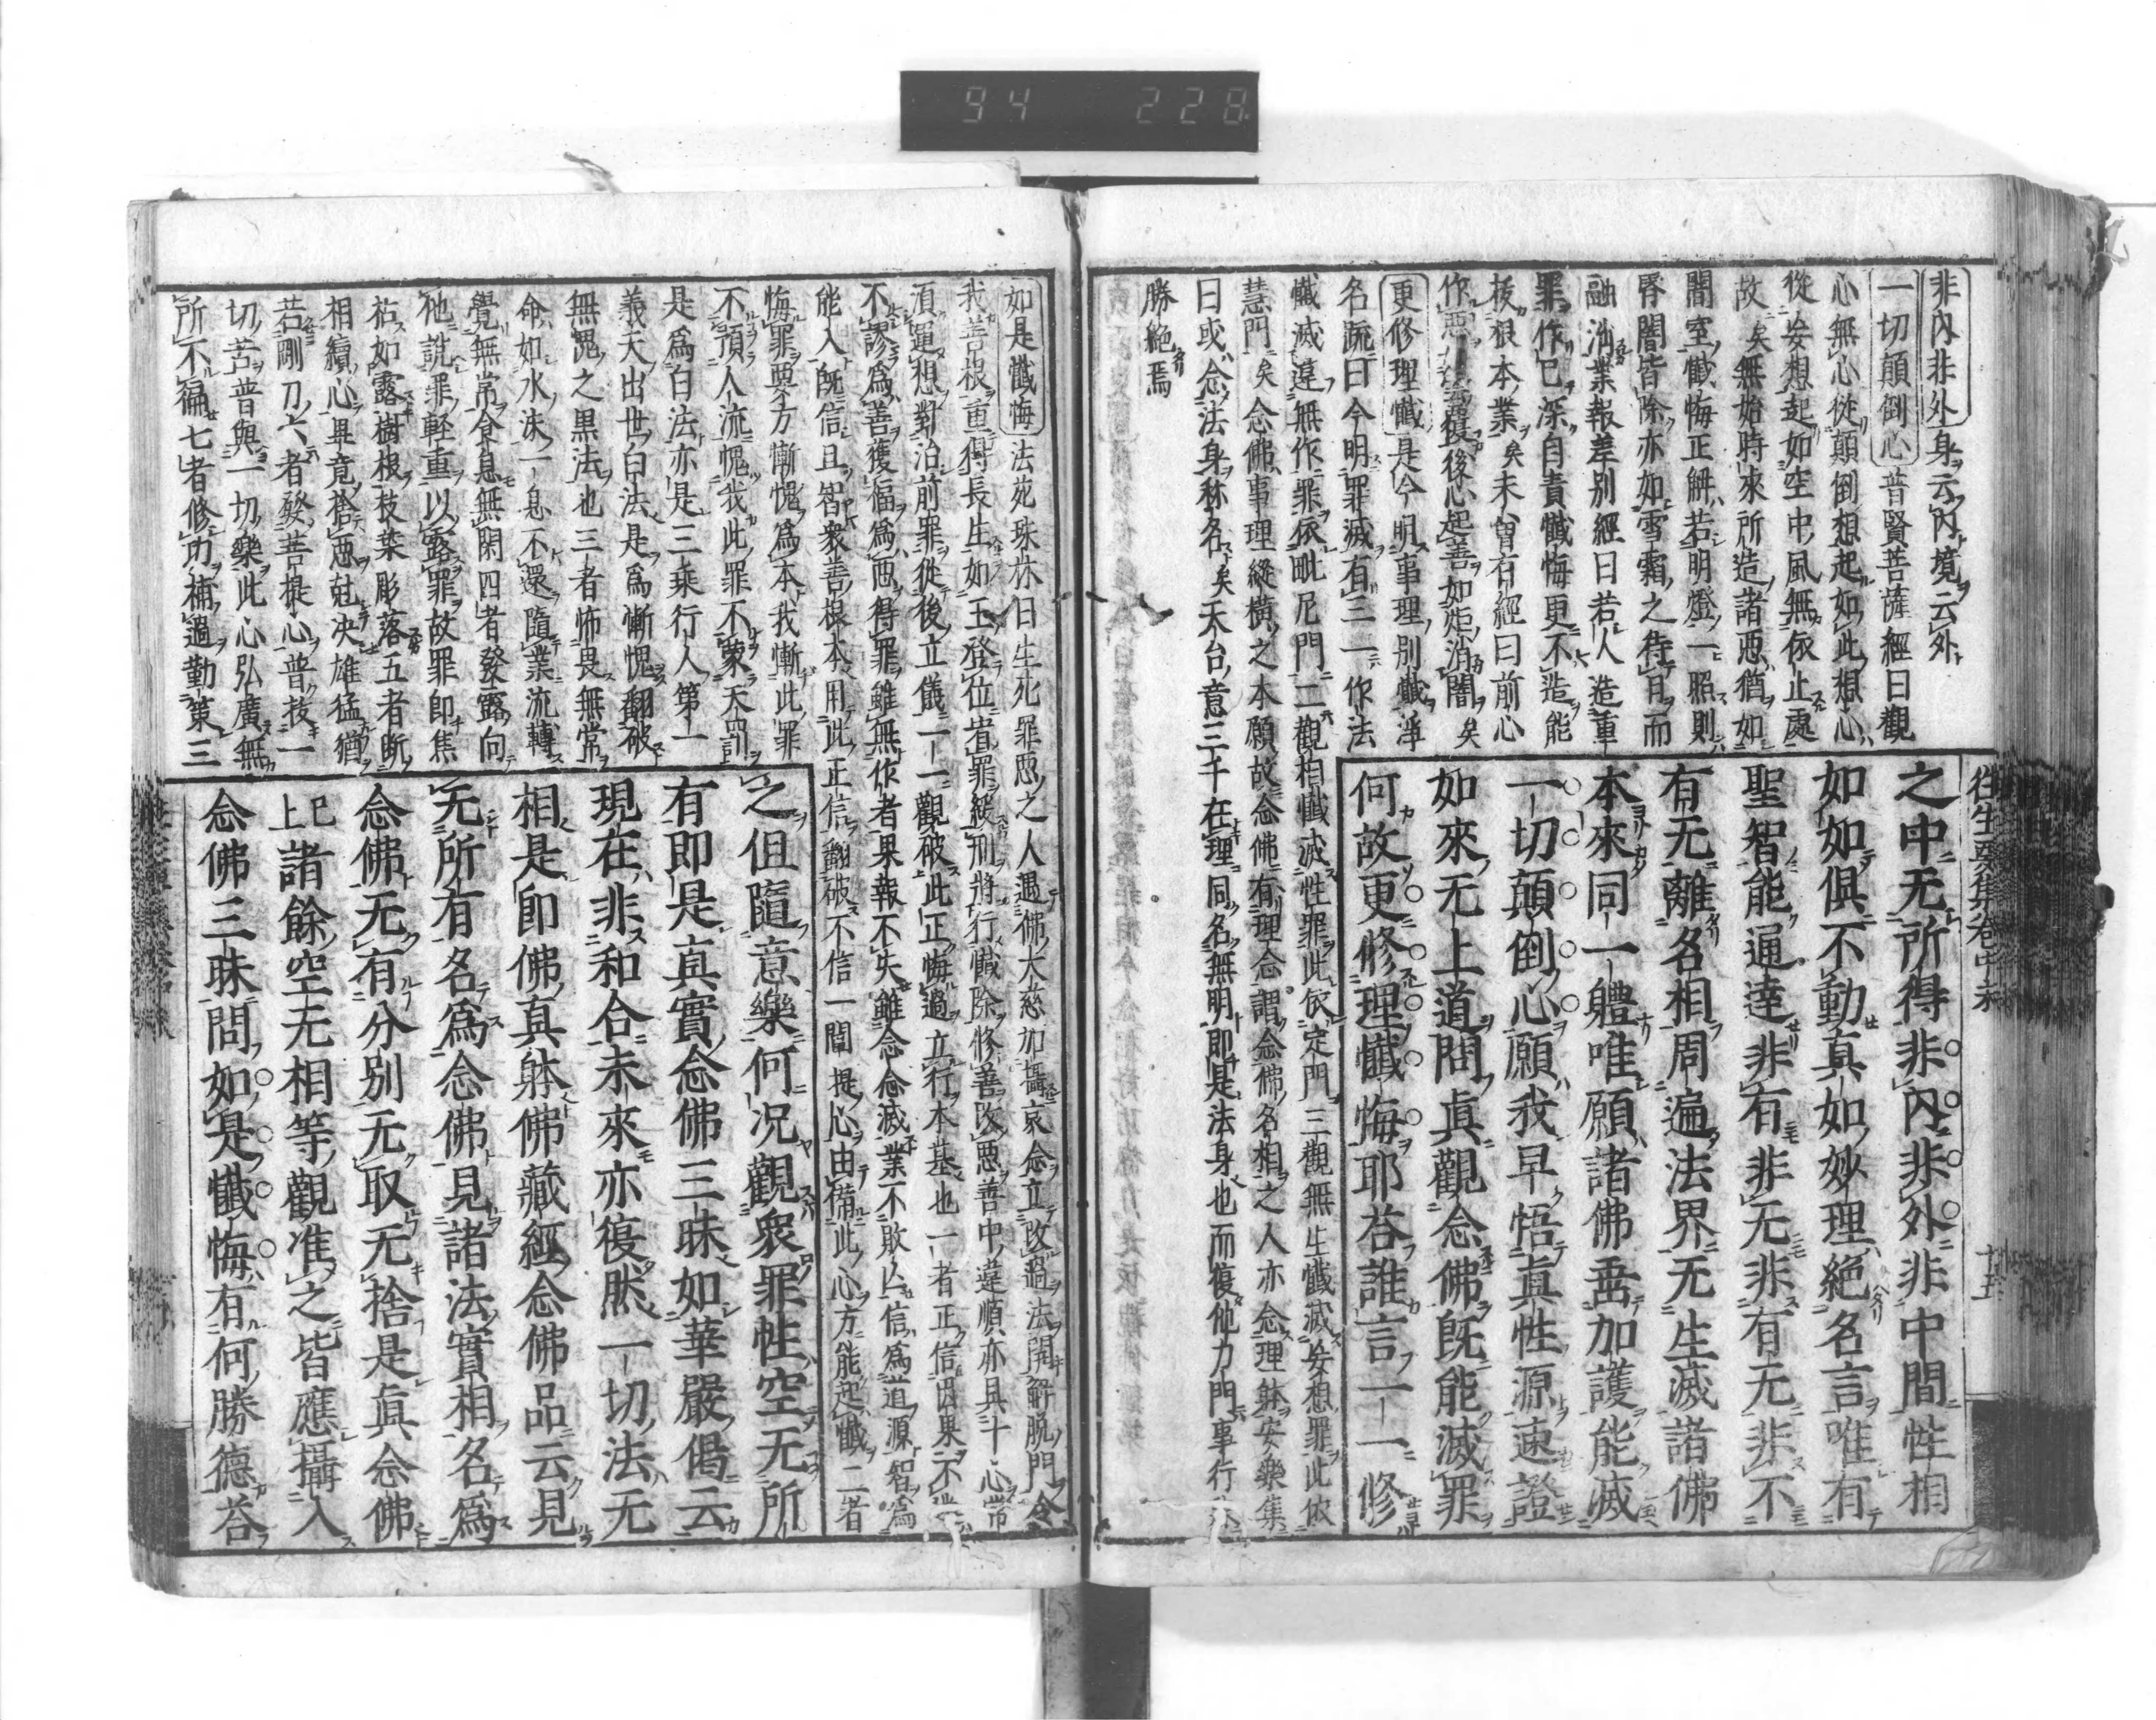 94 228
往生要集卷中末
十五
非內非外身云內境云外
一切顛倒心普賢菩薩經曰觀
心無心從顛倒想起如此想心
從妄想起如空中風無依止處
故矣無始時來所造諸惡猶如
闇室懺悔正解若明燈一照則
昏闇皆除亦如雪霜之待日而
融消業報差別經曰若人造重
罪作已深自責懺悔更不造能
拔根本業矣未曾有經曰前心
作惡後心起善如炬消闇矣
更修理懺是今明事理別懺淨
名疏曰今明罪滅有三一作法
懺滅違無作罪依毗尼門二觀相懺滅性罪此依定門三觀無生懺滅妄想罪此依
慧門矣念佛事理縱橫之本願故念佛有理念謂念佛名相之人亦念理解安樂集
曰或念法身称名矣天台意三千在理同名無明即是法身也而復他力門事行
勝絕焉
之中无所得非內非外非中間性相
如如俱不動真如妙理絕名言唯有
聖智能通達非有非无非有无非不
有无離名相周遍法界无生滅諸佛
本來同一體唯願諸佛垂加護能滅
一切顛倒心願我早悟真性源速證
如來无上道問真觀念佛既能滅罪
何故更修理懺悔耶答誰言一一修
如是懺悔法苑珠林曰生死罪惡之人遇佛大慈加攝哀念立改過法開解脫門令
我善根重得長生如王登位若罪緩刑將行懺除修善改惡善中違順亦具十心常
須運想對治前罪從後立儀一一觀破此正悔過立行本基也一者正信因果不
不謬為善獲福為惡得罪雖無作者果報不失雖念念滅業不敗亡信為道源智為
能入既信且智衆善根本用此正信翻破不信一闡提心由備此心方能起懺二者
悔罪要方慚愧為本我慚此罪
不預人流愧我此罪不蒙天罰
是為白法亦是三乘行人第一
義天出世白法是為慚愧翻破
無愧之黑法也三者怖畏無常
命如水沫一息不還隨業流轉
覺無常食息無閑四者發露向
他說罪輕重以露罪故罪即焦
枯如露樹根枝葉彫落五者断
相續心畢竟捨惡尅决雄猛猶
若剛刀六者發菩提心普拔一
切苦普與一切樂此心弘廣無
所不徧七者修功補過勤策三
之但隨意樂何况觀衆罪性空无所
有即是真實念佛三昧如華嚴偈云
現在非和合未來亦復然一切法无
相是即佛真躰佛藏經念佛品云見
无所有名為念佛見諸法實相名為
念佛无有分別无取无捨是真念佛
已上諸餘空无相等觀准之皆應攝入
念佛三昧問如是懺悔有何勝德荅